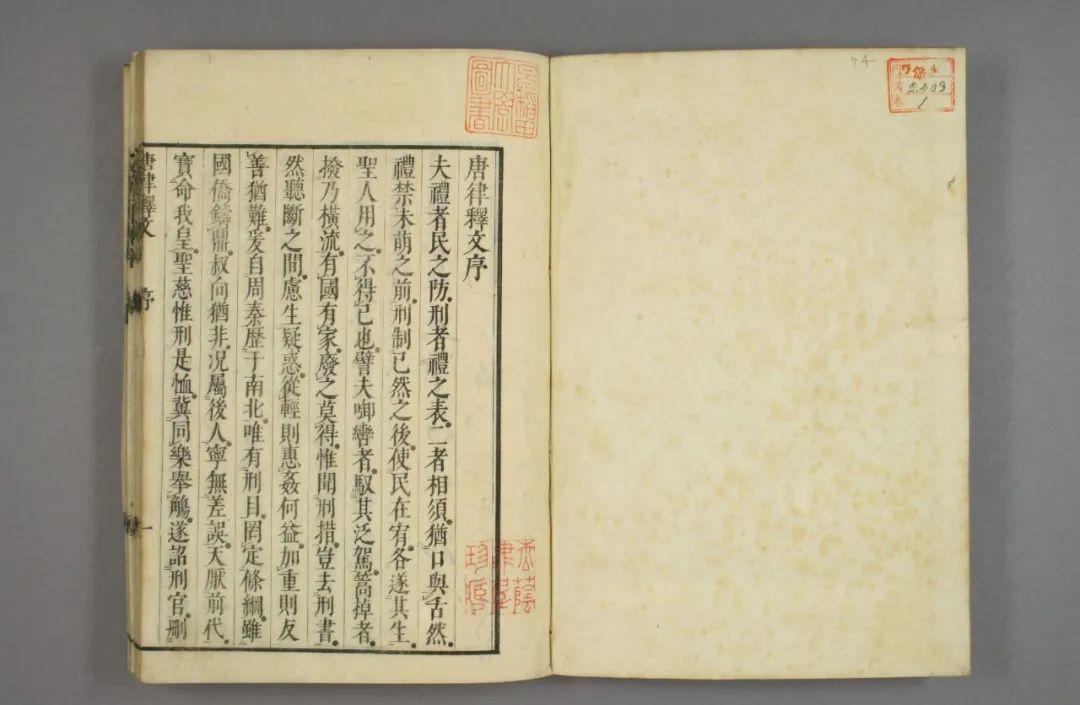 唐律釋文序
夫禮者民之防刑者禮之表二者相須猶口與舌然
禮禁未萌之前刑制已然之後使民在宥各遂其生
聖人用之不得已也譬夫啣轡者馭其泛駕篙棹者
撥乃橫流有國有家廢之莫得惟聞刑措豈去刑書
然聽斷之間慮生疑惑從輕則惠姦何益加重則反
善猶難爰自周秦歷于南北唯有刑目罔定條綱雖
國僑鑄鼎叔向猶非况屬後人寧無差誤天厭前代
寶命我皇聖慈惟刑是恤冀同樂舉觴遂詔刑官刪
唐律釋文 序 一
早稻田大學圖書
1